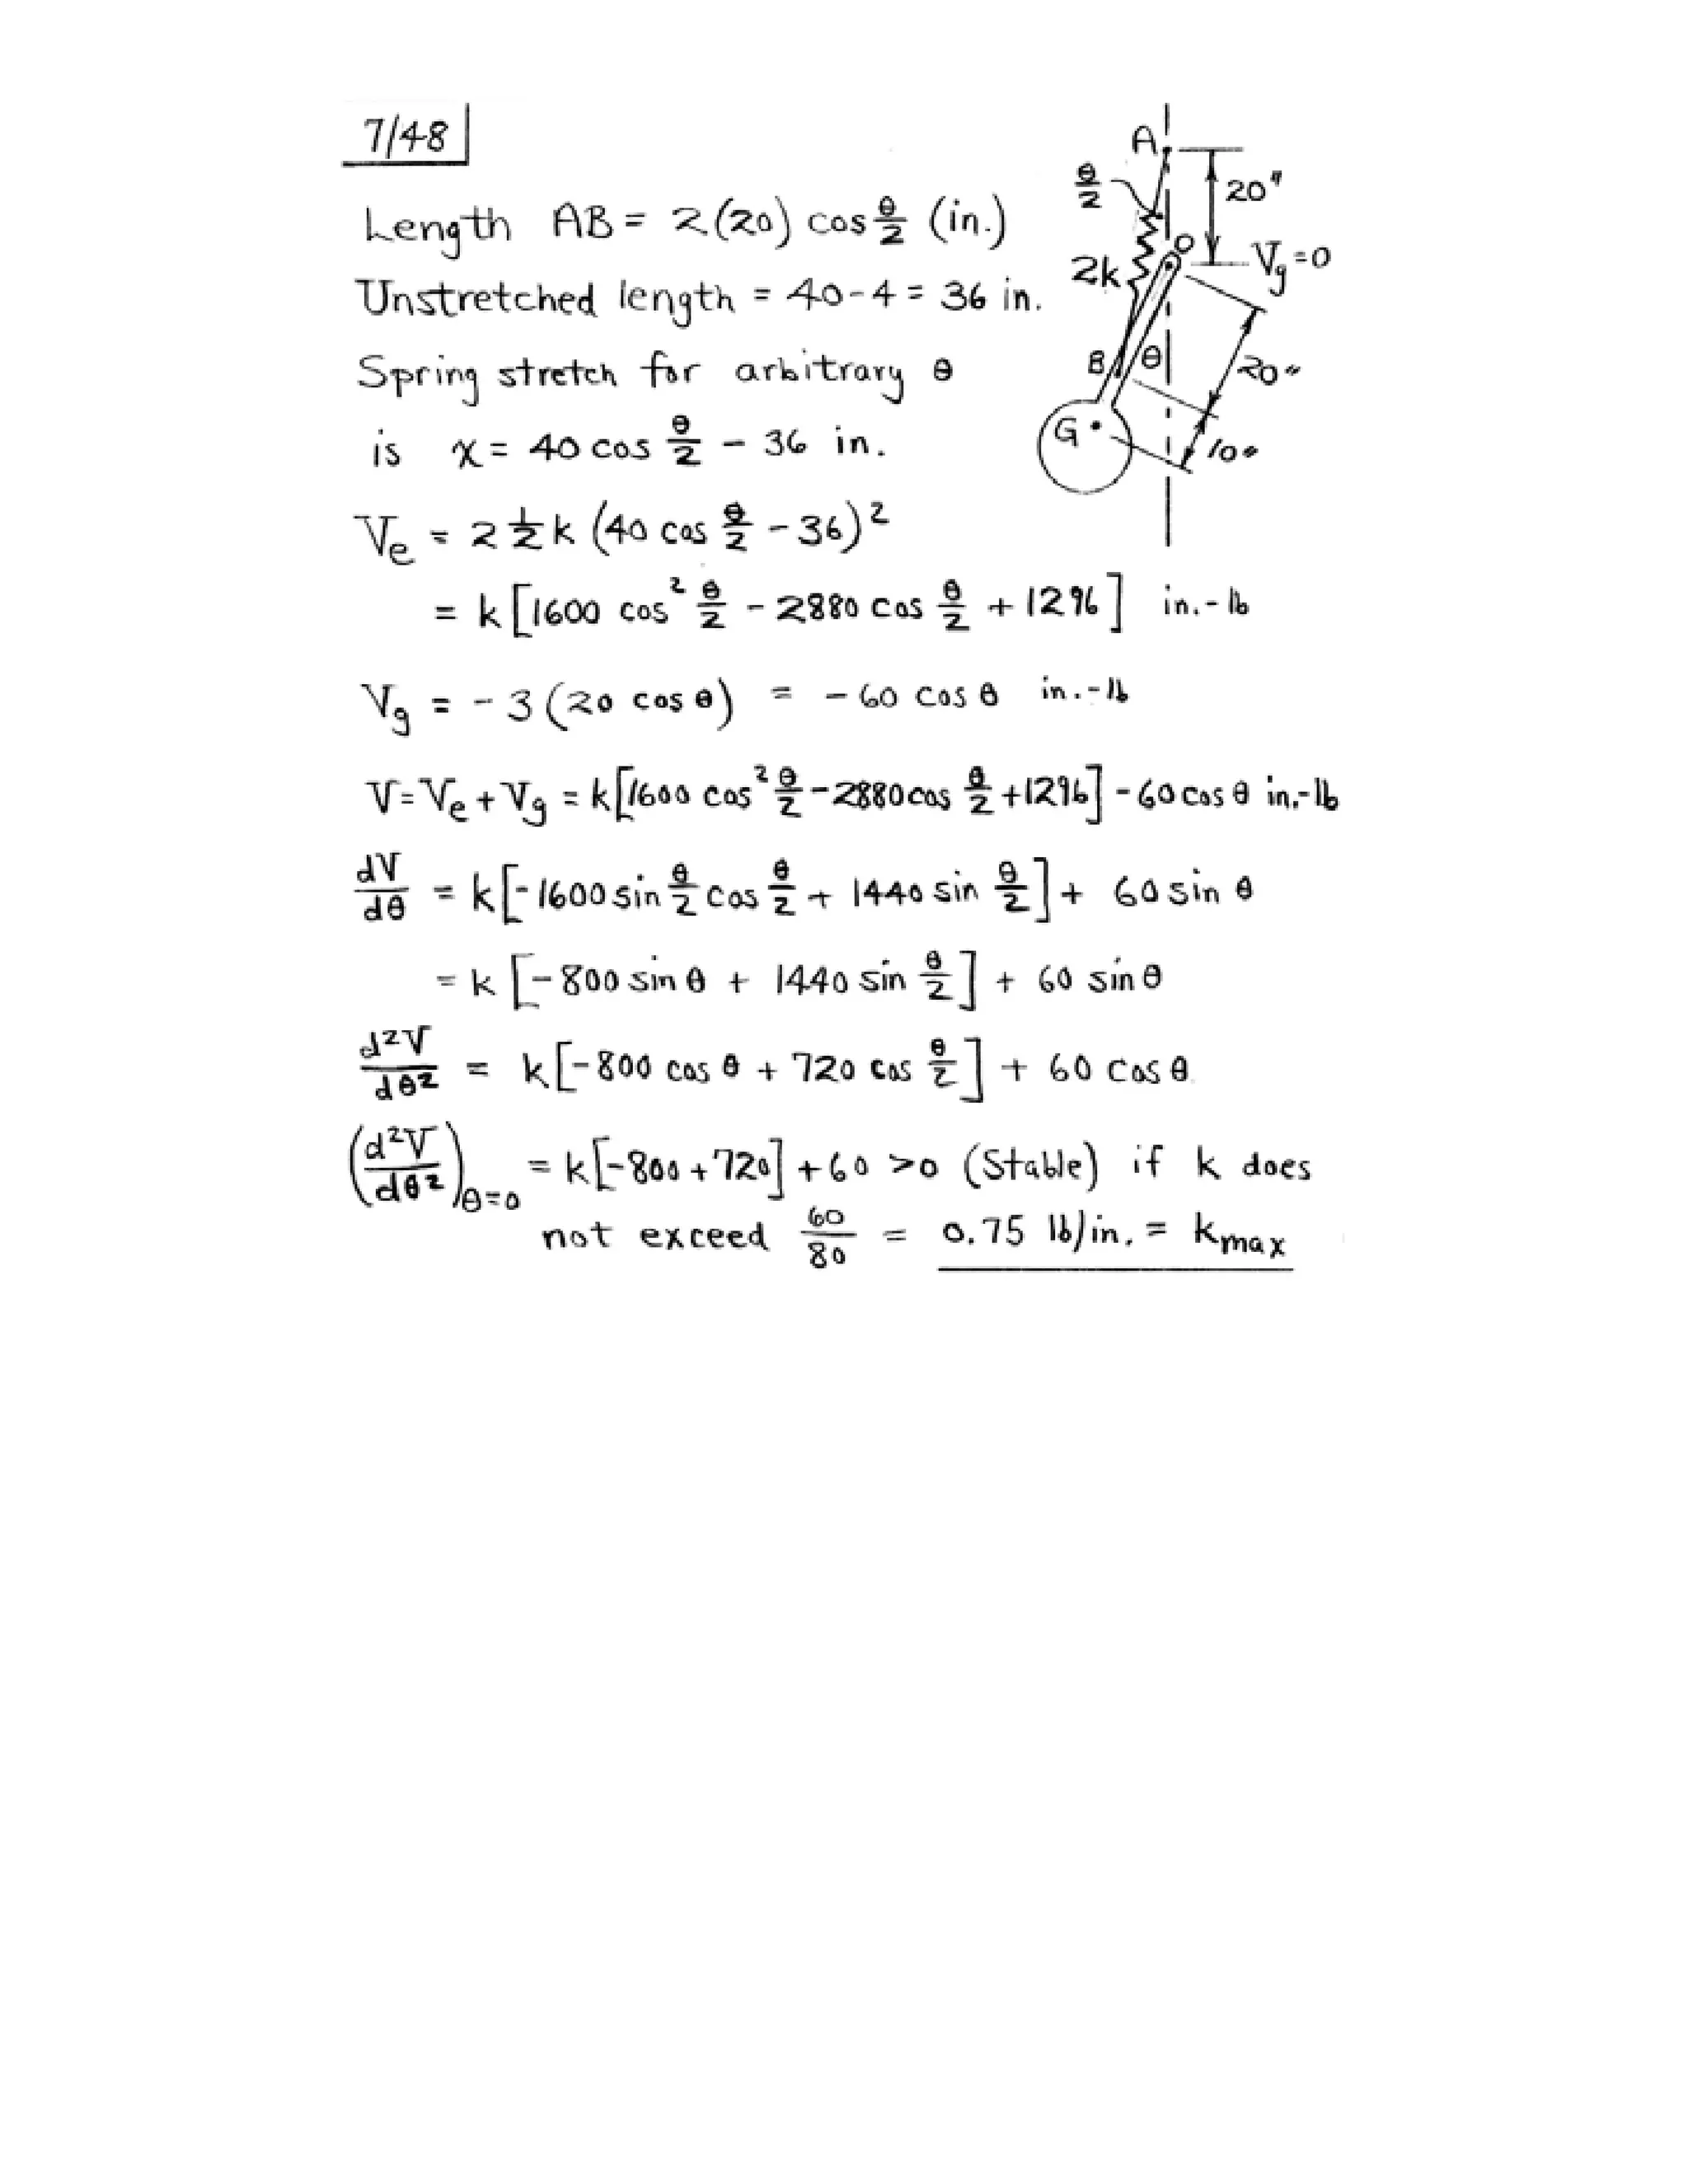 7/48
Length AB = 2(20) cos θ/2 (in.)
Unstretched length = 40-4 = 36 in.
Spring stretch for arbitrary θ
is x = 40 cos θ/2 - 36 in.
A
θ/2
20"
O
Vg=0
2k
B
θ
20"
G
10"
Ve = 2 1/2 k (40 cos θ/2 - 36)²
= k [1600 cos² θ/2 - 2880 cos θ/2 + 1296] in.-lb
Vg = -3 (20 cos θ) = -60 cos θ in.-lb
V = Ve + Vg = k[1600 cos² θ/2 - 2880 cos θ/2 + 1296] - 60 cos θ in.-lb
dV/dθ = k[-1600 sin θ/2 cos θ/2 + 1440 sin θ/2] + 60 sin θ
= k [-800 sin θ + 1440 sin θ/2] + 60 sin θ
d²V/dθ² = k[-800 cos θ + 720 cos θ/2] + 60 cos θ
(d²V/dθ²)θ=0 = k[-800+720] + 60 >0 (Stable) if k does
not exceed 60/80 = 0.75 lb/in. = kmax